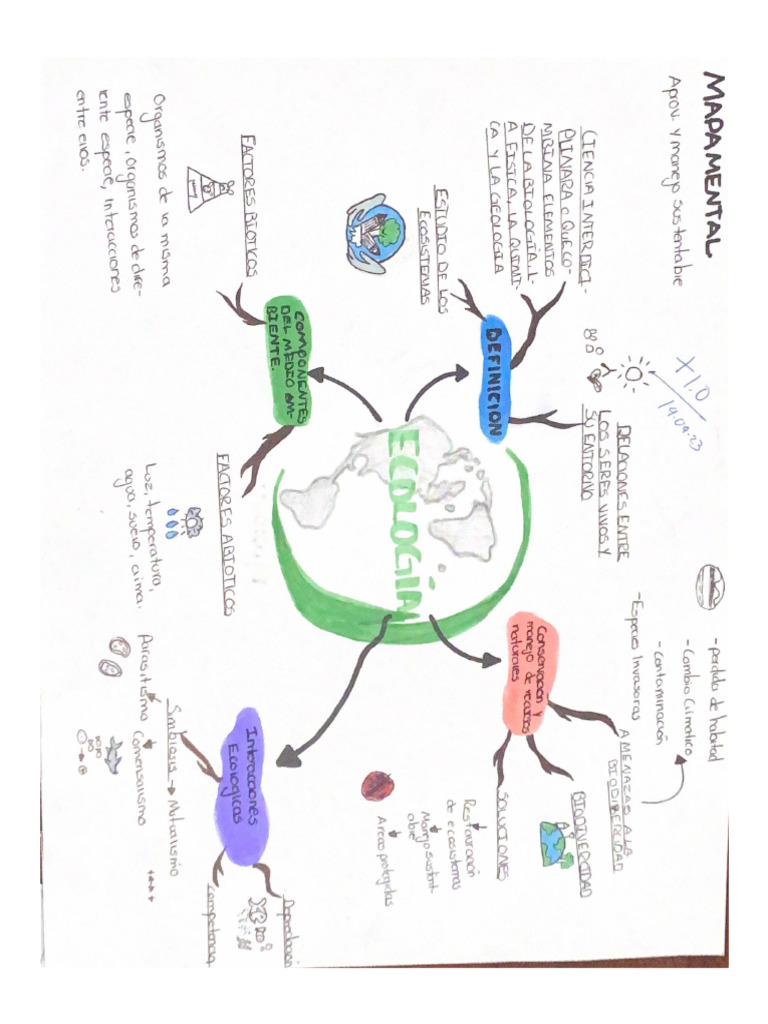 MAPA MENTAL
Aprov. y manejo sustentable
x 1.0
19.09.23
ECOLOGÍA
DEFINICION
CIENCIA INTERDICI-
PLINARA Q QUE CO-
MBINA ELEMENTOS
DE LA BIOLOGÍA, L-
A FISICA, LA QUIMI-
CA Y LA GEOLOGIA
ESTUDIO DE LOS
ECOSISTEMAS
RELACIONES ENTRE
LOS SERES VIVOS Y
SU ENTORNO
COMPONENTES
DEL MEDIO AM-
BIENTE.
FACTORES BIOTICOS
Organismos de la misma
especie, organismos de dife-
rente especie, interacciones
entre ellos.
FACTORES ABIOTICOS
Luz, temperatura,
agua, suelo, clima.
Conservación y
manejo de recursos
naturales
AMENAZAS A LA
BIODIBERCIDAD
- perdida de habitad
- Cambio Climatico
- contaminación
- Especies Invasoras
BIODIVERCIDAD
SOLUCIONES
Restauración
de ecosistemas
Manejo sustent-
able
Areas protegidas
Interacciones
Ecologicas
Simbiosis → Mutualismo
Parasitismo
Comensalismo
Depredación
Competencia